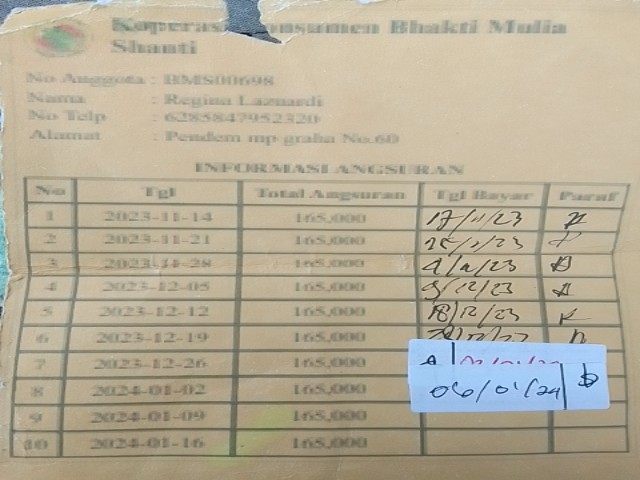 Koperasi Konsumen Bhakti Mulia
Shanti
No Anggota : BMS00698
Nama : Regina Laznardi
No Telp : 6285847952320
Alamat : Pendem mp graha No.60
INFORMASI ANGSURAN
No Tgl Total Angsuran Tgl Bayar Paraf
1 2023-11-14 165,000 17/11/23
2 2023-11-21 165,000
3 2023-11-28 165,000
4 2023-12-05 165,000 9/12/23
5 2023-12-12 165,000 18/12/23
6 2023-12-19 165,000
7 2023-12-26 165,000
8 2024-01-02 165,000 06/01/24
9 2024-01-09 165,000
10 2024-01-16 165,000